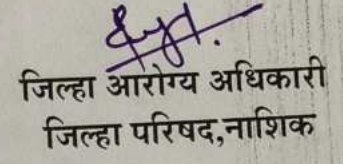 जिल्हा आरोग्य अधिकारी
जिल्हा परिषद,नाशिक